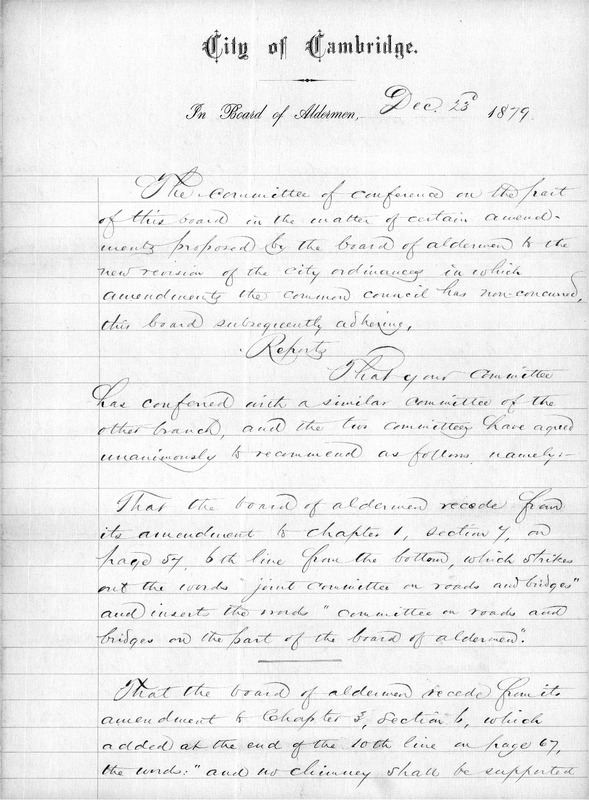 City of Cambridge.
In Board of Aldermen, Dec. 23d 1879
The committee of conference on the part
of this board in the matter of certain amend-
ments proposed by the board of aldermen to the
new revision of the city ordinances in which
amendments the common council has non-concurred,
this board subsequently adhering,
Reports
That your committee
has conferred with a similar committee of the
other branch, and the two committees have agreed
unanimously to recommend as follows namely:-
That the board of aldermen recede from
its amendment to chapter 1, section 7, on
page 57, 6th line from the bottom, which strikes
out the words "joint committee on roads and bridges"
and inserts the words "committee on roads and
bridges on the part of the board of aldermen".
That the board of aldermen recede from its
amendment to Chapter 3, Section 6, which
added at the end of the 10th line on page 67,
the words: "and no chimney shall be supported